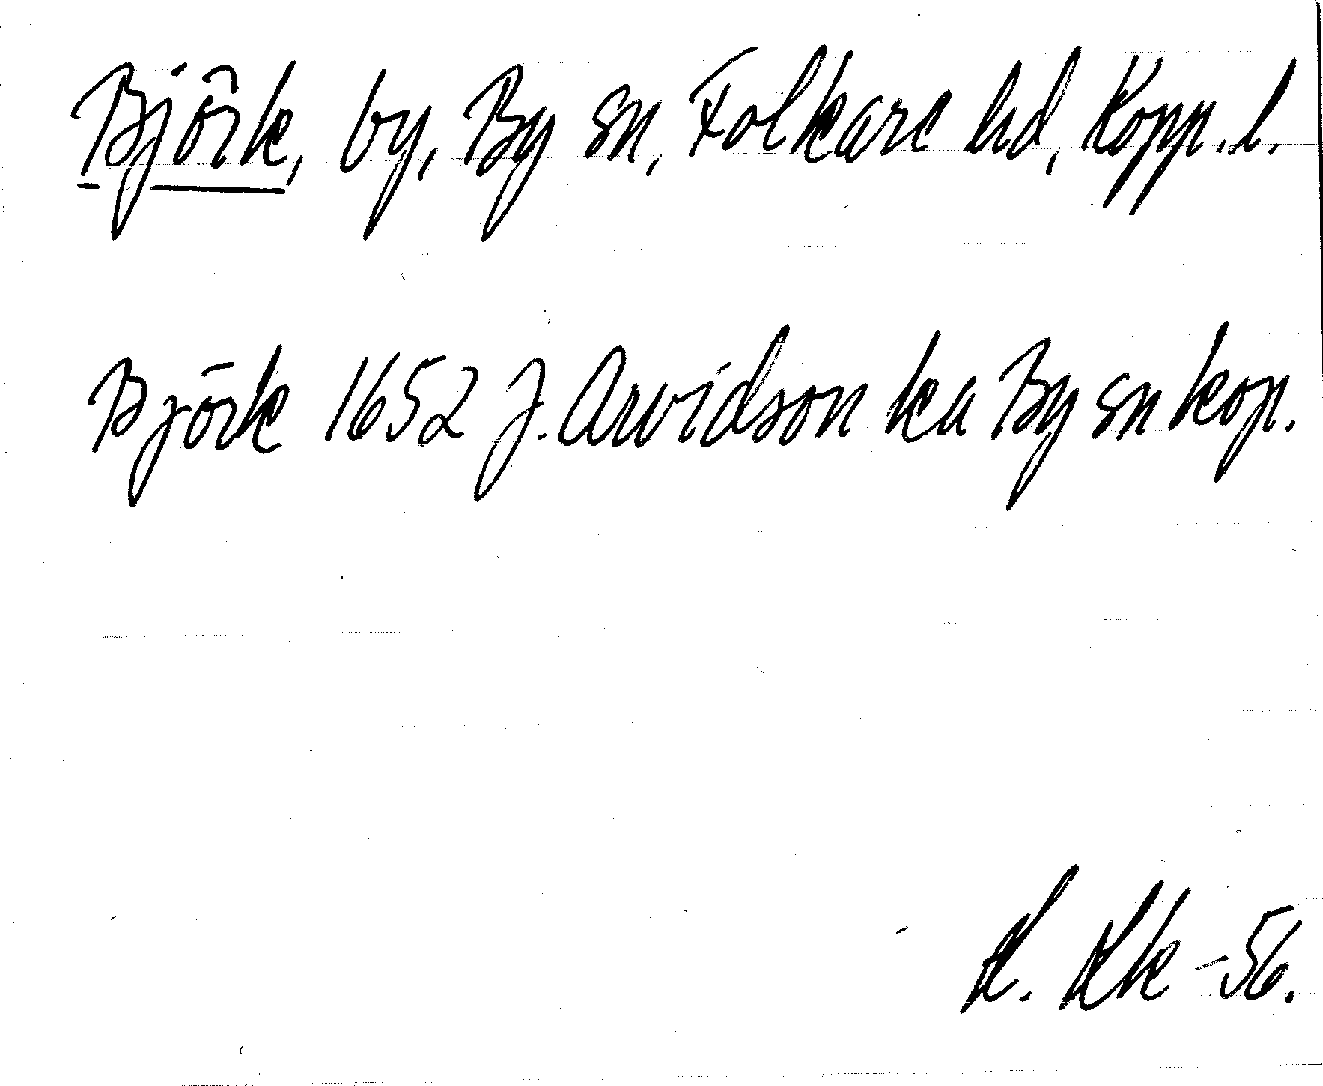 Björk, by, By sn, Folkare hd, Kopp. l.
Björk 1652 J. Arvidson ka By sn kop.
-56.